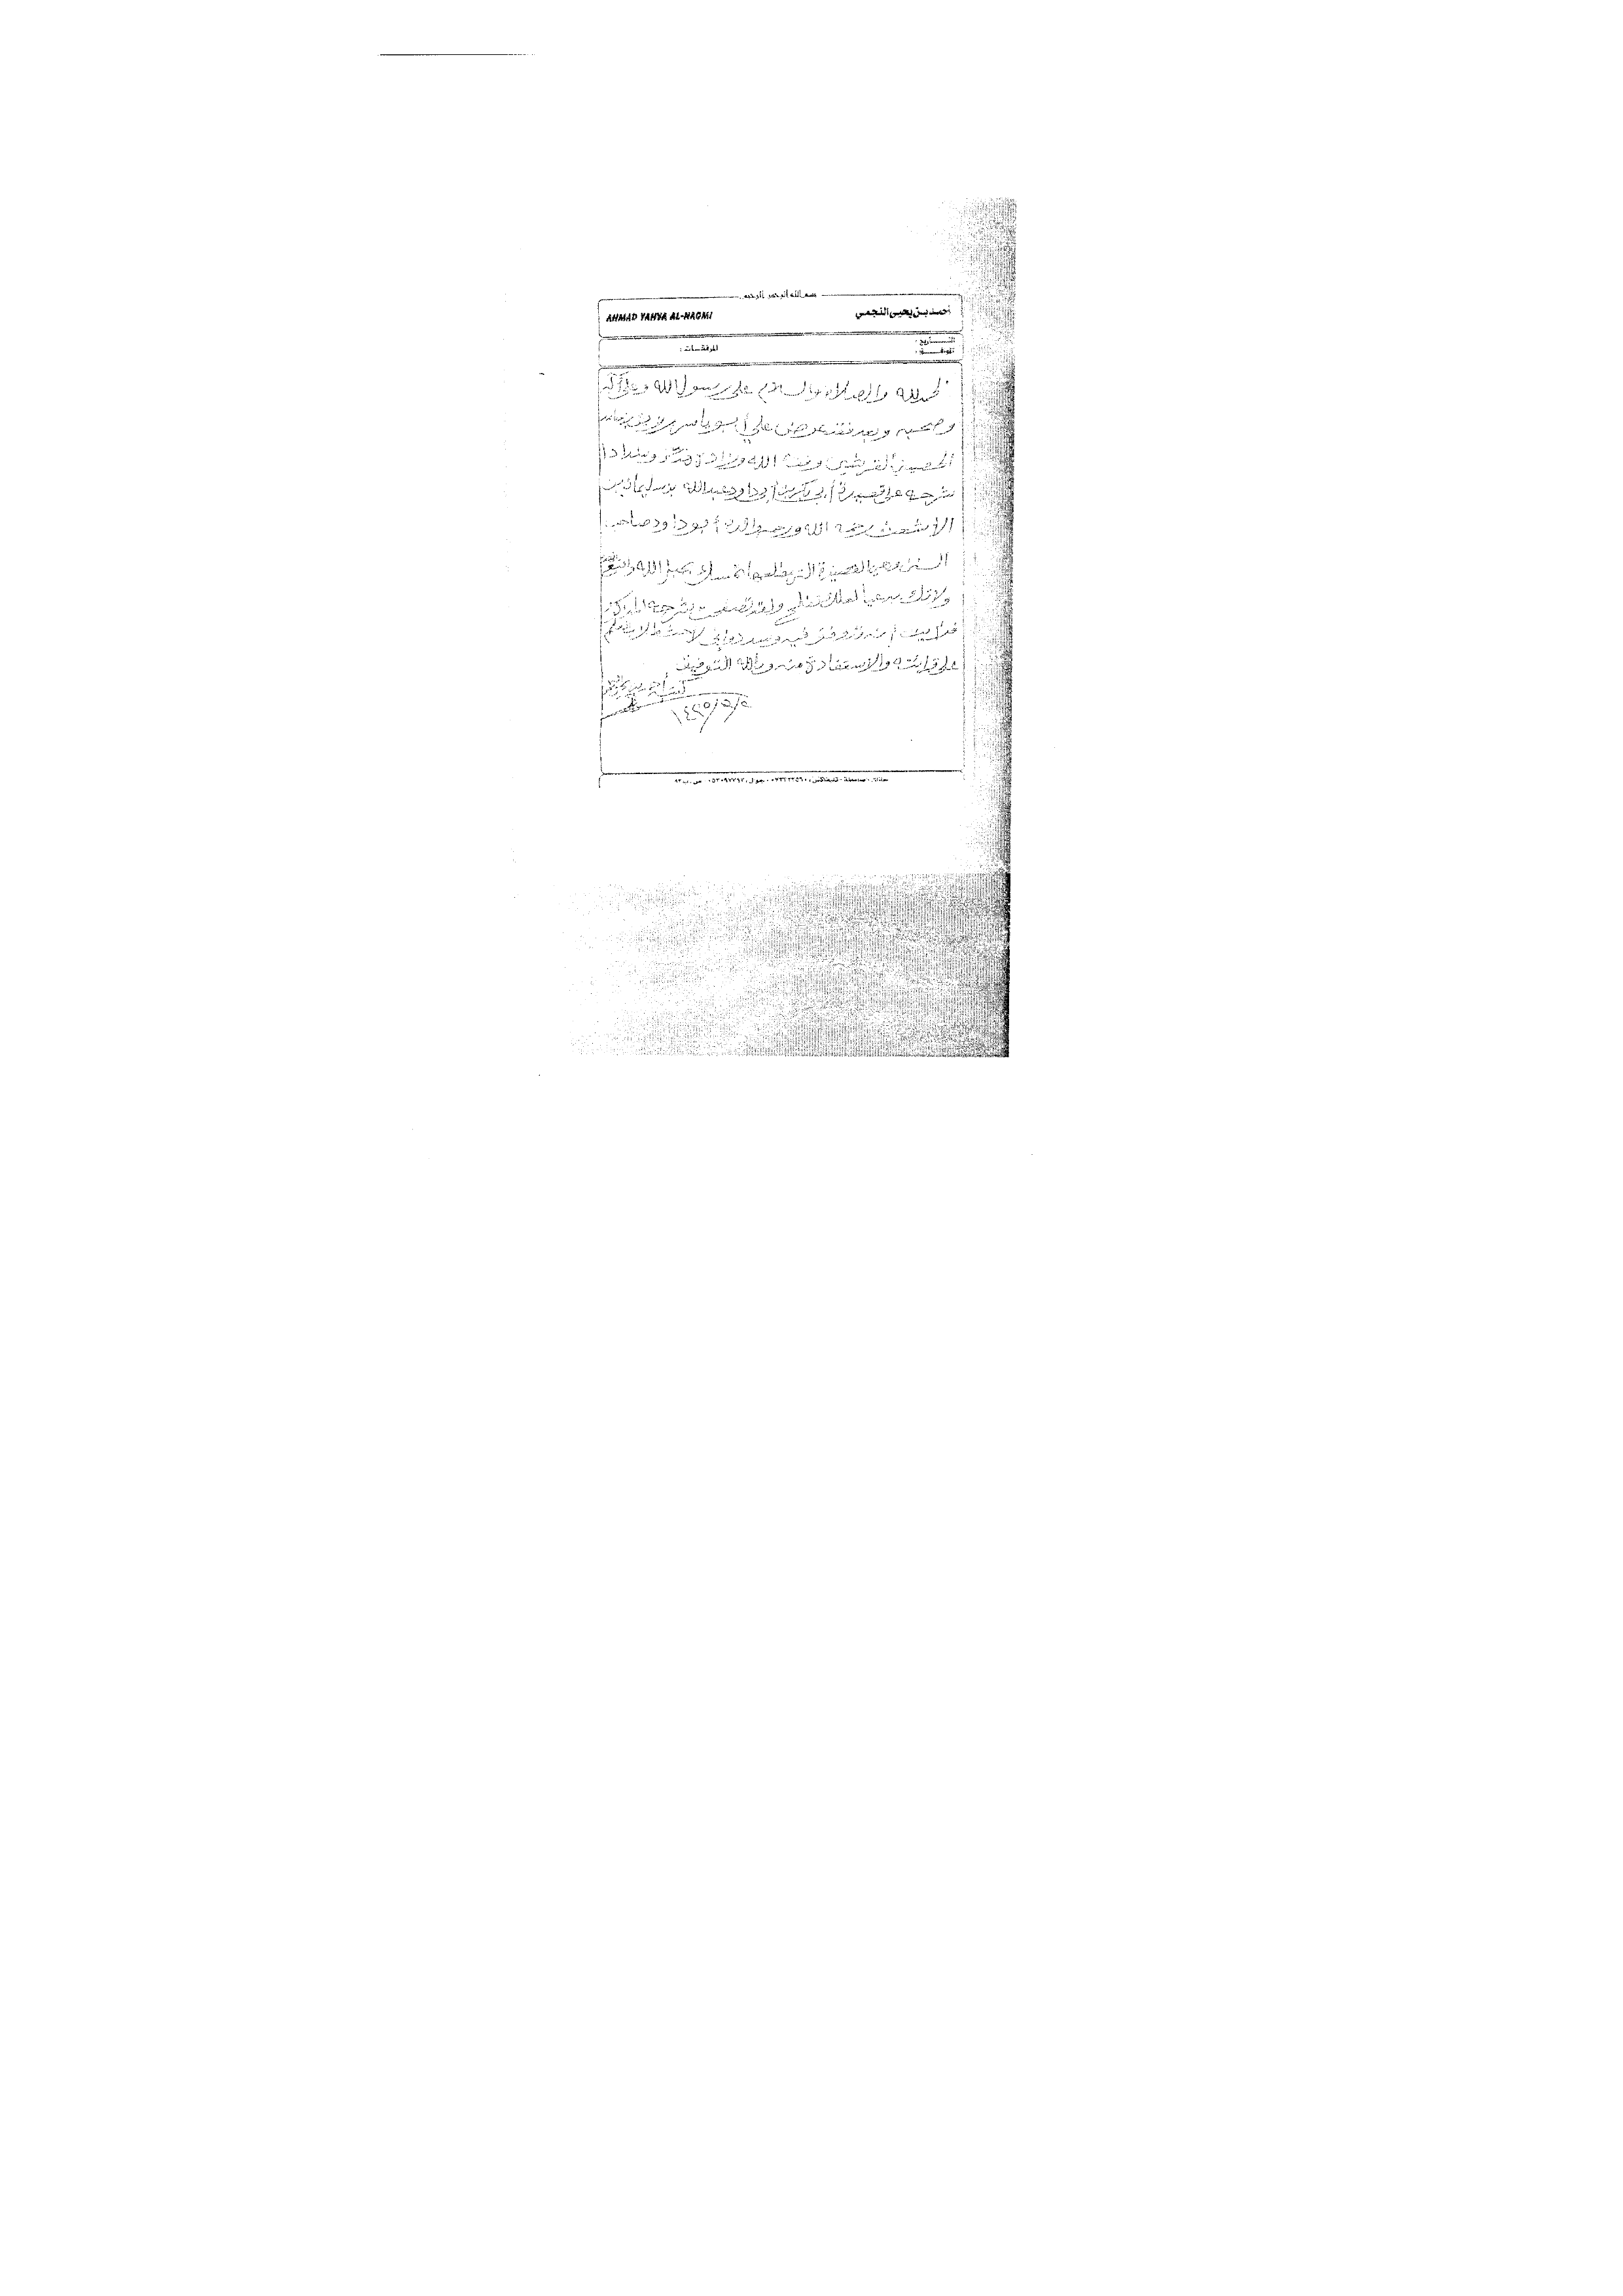 بسم الله الرحمن الرحيم
أحمد بن يحيى النجمي
AHMAD YAHYA AL-NAGMI
التاريخ :
الموافق :
المرفقات :
الحمد لله والصلاة والسلام على رسول الله وعلى آله
وصحبه وبعد فقد عرض علي أبو ياسر
الحصيني القرشي وفقه الله وزاده وسدادا
شرحه على قصيدة أبي بكر بن أبي داود عبدالله بن سليمان بن
الأشعث رحمه الله ورحم والده أبو داود صاحب
السنن وهي القصيدة التي مطلعها تمسك بحبل الله واتبع الهدى
ولا تك بدعيا لعلك تفلح ولقد تصفحت شرحه المذكور
فرأيت أنه قد وفق فيه وسدد وإني لأحث طلاب العلم
على قرائته والاستفادة منه وبالله التوفيق
كتبه أحمد بن يحيى النجمي